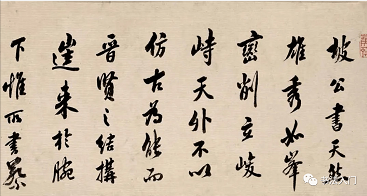 坡公書天骨
雄秀如峯
巒削立崚
峙天外不以
仿古為能而
晉賢之結構
遒來於腕
下惟所書綦